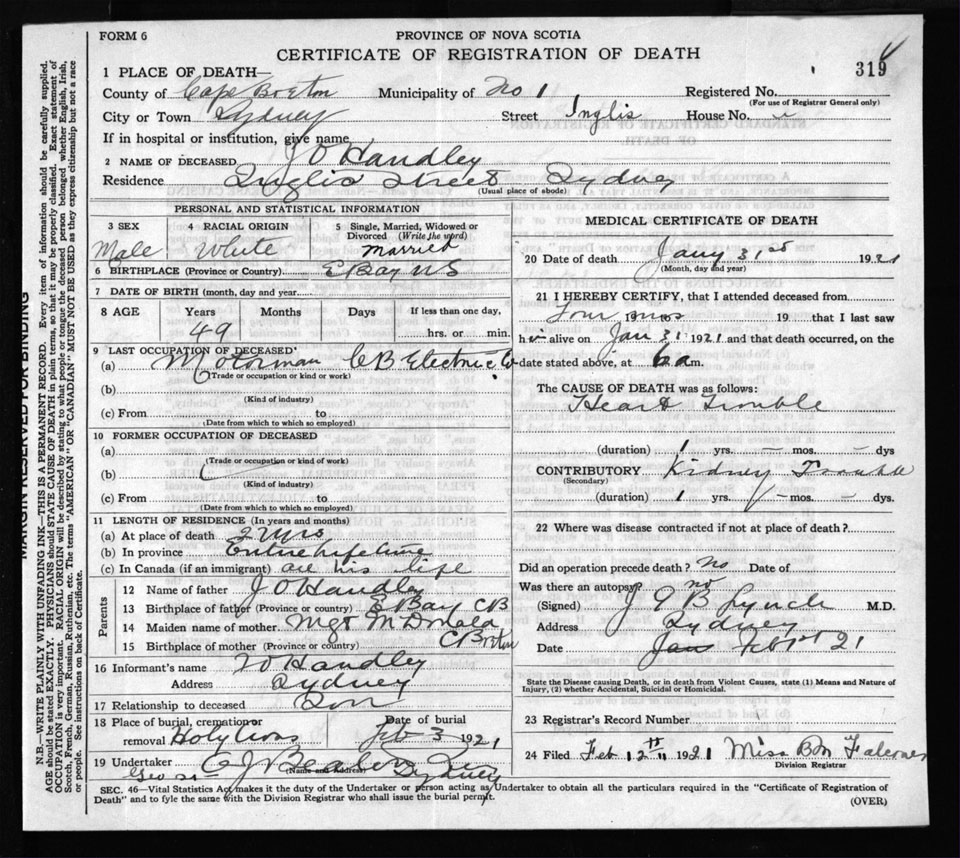 FORM 6
PROVINCE OF NOVA SCOTIA
CERTIFICATE OF REGISTRATION OF DEATH
319
1 PLACE OF DEATH—
County of Cape Breton Municipality of No 1 Registered No.
(For use of Registrar General only)
City or Town Sydney Street Inglis House No.
If in hospital or institution, give name
2 NAME OF DECEASED J O Handley
Residence Inglis Street Sydney
(Usual place of abode)
PERSONAL AND STATISTICAL INFORMATION
3 SEX 4 RACIAL ORIGIN 5 Single, Married, Widowed or Divorced (Write the word)
Male White Married
6 BIRTHPLACE (Province or Country) E Bay NS
7 DATE OF BIRTH (month, day and year)
8 AGE Years Months Days If less than one day,
49 hrs. or min.
9 LAST OCCUPATION OF DECEASED
(a) Motorman C B Electric Co
(Trade or occupation or kind or work)
(b)
(Kind of industry)
(c) From to
(Date from which to which so employed)
10 FORMER OCCUPATION OF DECEASED
(a)
(Trade or occupation or kind of work)
(b)
(Kind of industry)
(c) From to
(Date from which to which so employed)
11 LENGTH OF RESIDENCE (In years and months)
(a) At place of death 2 yrs
(b) In province Entire lifetime
(c) In Canada (if an immigrant) all his life
Parents
12 Name of father J O Handley
13 Birthplace of father (Province or country) E Bay CB
14 Maiden name of mother Mgt McDonald
15 Birthplace of mother (Province or country) C Breton
16 Informant's name W Handley
Address Sydney
17 Relationship to deceased Son
18 Place of burial, cremation or removal Holy Cross Date of burial Feb 3 1921
19 Undertaker
(Name and Address) Sydney
MEDICAL CERTIFICATE OF DEATH
20 Date of death Jany 31st 1921
(Month, day and year)
21 I HEREBY CERTIFY, that I attended deceased from
Four mos 19 that I last saw
him alive on Jan 31 1921 and that death occurred, on the
date stated above, at 6 a m.
The CAUSE OF DEATH was as follows:
Heart Trouble
(duration) 1 yrs. — mos. — dys
CONTRIBUTORY Kidney Trouble
(Secondary)
(duration) 1 yrs. — mos. — dys.
22 Where was disease contracted if not at place of death?
Did an operation precede death? No Date of
Was there an autopsy? no
(Signed) Lynch M.D.
Address Sydney
Date Feb 1st 21
State the Disease causing Death, or in death from Violent Causes, state (1) Means and Nature of
Injury, (2) whether Accidental, Suicidal or Homicidal.
23 Registrar's Record Number
24 Filed Feb 12th 1921 Miss
Division Registrar
SEC. 46—Vital Statistics Act makes it the duty of the Undertaker or person acting as Undertaker to obtain all the particulars required in the "Certificate of Registration of
Death" and to fyle the same with the Division Registrar who shall issue the burial permit.
(OVER)
MARGIN RESERVED FOR BINDING
N.B.—WRITE PLAINLY WITH UNFADING INK—THIS IS A PERMANENT RECORD. Every item of information should be carefully supplied.
AGE should be stated EXACTLY. PHYSICIANS should STATE CAUSE OF DEATH in plain terms, so that it may be properly classified. Exact statement of
OCCUPATION is very important. RACIAL ORIGIN will be described by stating to what people or tongue the deceased person belonged whether English, Irish,
Scotch, French, German, Russian, Ruthenian, etc. The terms "AMERICAN" OR "CANADIAN" MUST NOT BE USED as they express citizenship but not a race
or people. See instructions on back of Certificate.